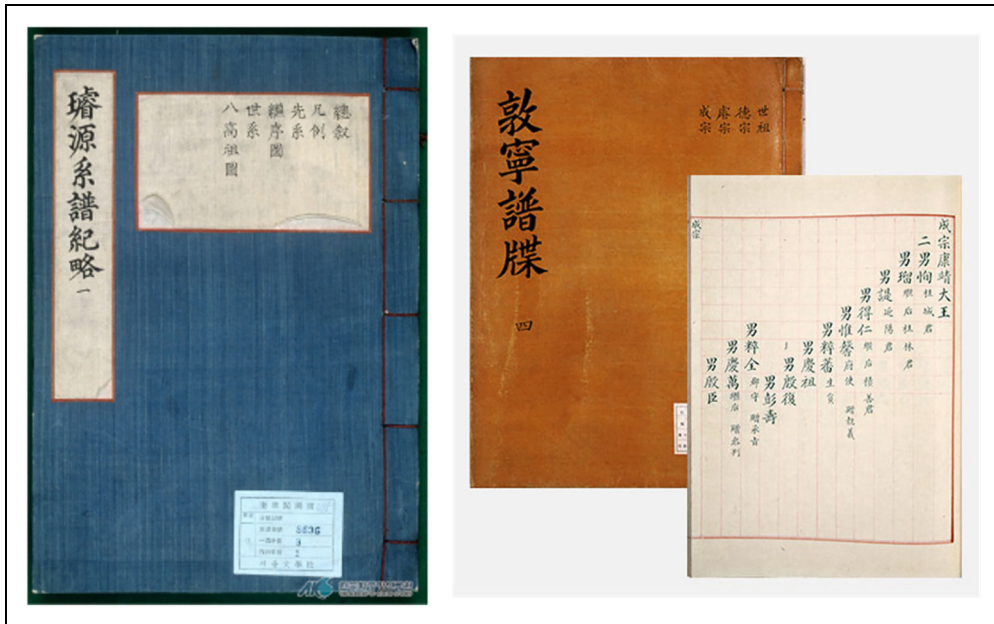 璿源系譜紀略 一
總敘
凡例
先系
繼序圖
世系
八高祖圖
8636
敦寧譜牒 四
世祖
德宗
睿宗
成宗
成宗康靖大王
二男恂 桂城君
男瑠 繼后桂林君
男諟 延陽君
男得仁 繼后積善君
男惟馨 府使
男粹蕃 生員
男慶祖
男殷復
男彭壽
男粹全
男慶萬
男殷臣
成宗